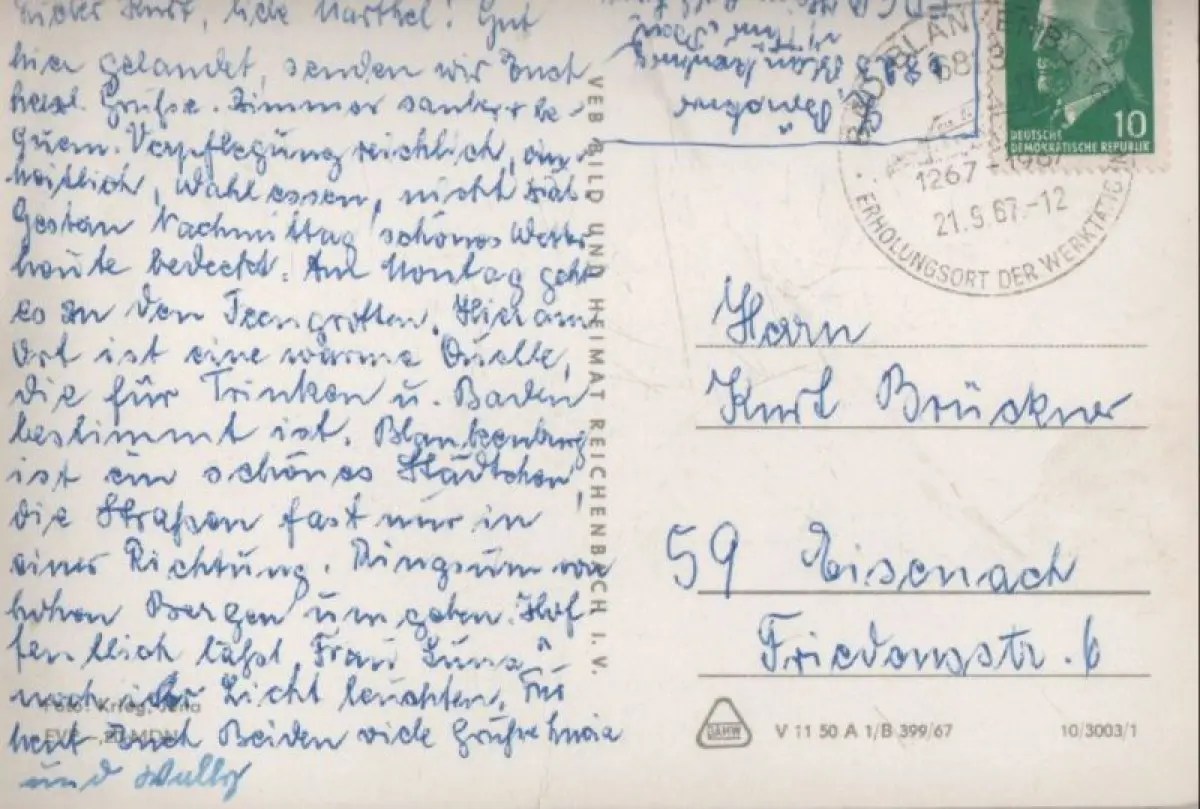 Lieber Kurt, liebe Marthel! Gut
hier gelandet, senden wir Euch
herzl. Grüße. Zimmer sauber u. be-
quem. Verpflegung reichlich, ein-
heitlich, Wahlessen, nicht
Gestern Nachmittag schönes Wetter
heute bedeckt. Am Montag geht
es zu den Feengrotten. Hier am
Ort ist eine warme Quelle,
die für Trinken u. Baden
bestimmt ist. Blankenburg
ist ein schönes Städtchen,
die Straßen fast nur in
einer Richtung. Ringsum von
hohen Bergen umgeben. Hof-
fentlich läßt Frau Luna
noch ihr Licht leuchten. Für
heut Euch Beiden viele Grüße
und Willy
Foto: Krieg, Jena
EVP –,20 MDN
VEB BILD UND HEIMAT REICHENBACH I. V.
Absender
BAD BLANKENBURG
1267 - 1967
21.9.67.-12
ERHOLUNGSORT DER WERKTÄTIGEN
10
DEUTSCHE
DEMOKRATISCHE REPUBLIK
Herrn
Kurt Brückner
59 Eisenach
Friedensstr. 6
V 11 50 A 1/B 399/67
10/3003/1